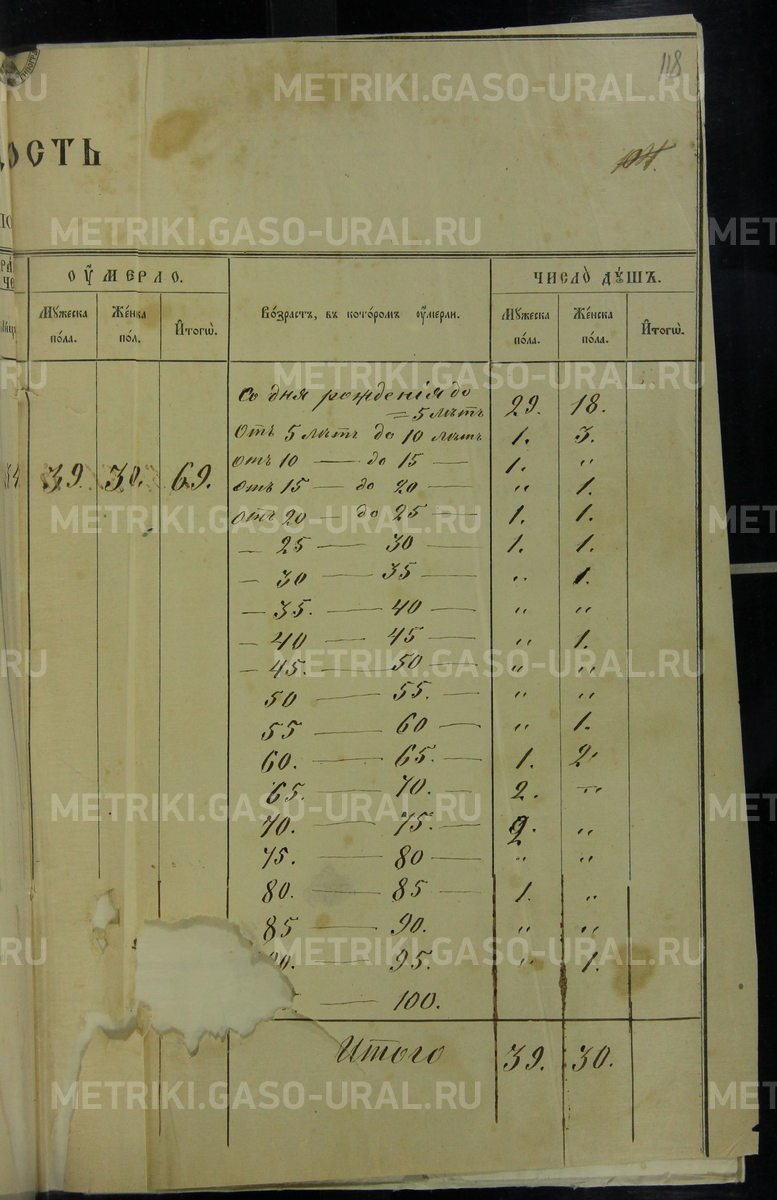 118
METRIKI.GASO-URAL.RU
ДОСТЬ
ОУ҆МЕРЛО.
Возрастъ, въ которомъ оу҆мерли.
ЧИСЛО ДꙊШЪ.
Мꙋжеска пола.
Женска пол.
И҆тогѡ.
Мꙋжеска пола.
Женска пола.
И҆тогѡ.
39. 30. 69.
Со дня рожденія до
= 5 лѣтъ 29. 18.
Отъ 5 лѣтъ до 10 лѣтъ 1. 3.
отъ 10 — до 15 — 1. "
отъ 15 — до 20 — " 1.
отъ 20 — до 25 — 1. 1.
— 25 — 30 — 1. 1.
— 30 — 35 — " 1.
— 35. — 40 — " "
— 40 — 45 — " 1.
— 45. — 50 — " "
50 — 55. — " "
55 — 60 — " 1.
60. — 65. — 1. 2
65. — 70. — 2. "
70. — 75. — 2. "
75. — 80 — " "
80. — 85 — 1. "
85 — 90. " "
95. " 1.
— 100.
Итого 39. 30.
METRIKI.GASO-URAL.RU